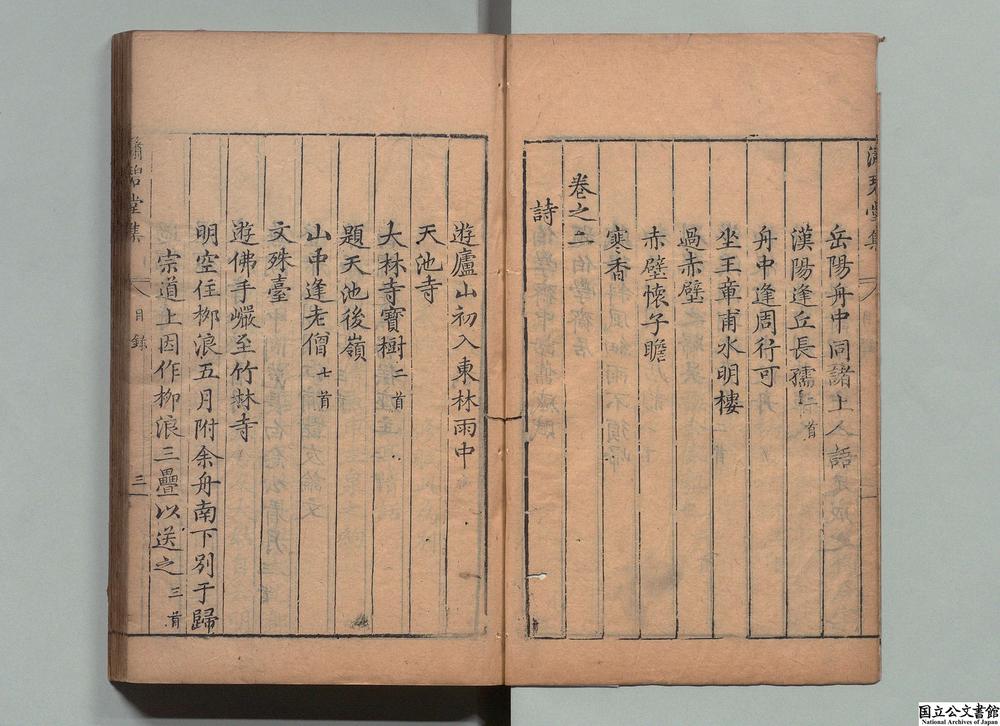 岳陽舟中同諸上人語
漢陽逢丘長孺二首
舟中逢周行可
坐王章甫水明樓
過赤壁
赤壁懷子瞻
寒香
卷之二
詩
遊廬山初入東林雨中
天池寺
大林寺寶樹二首
題天池後嶺
山中逢老僧七首
文殊臺
遊佛手巖至竹林寺
明空住柳浪五月附余舟南下別于歸
宗道上因作柳浪三疊以送之三首
瀟碧堂集 目錄 三
国立公文書館
National Archives of Japan